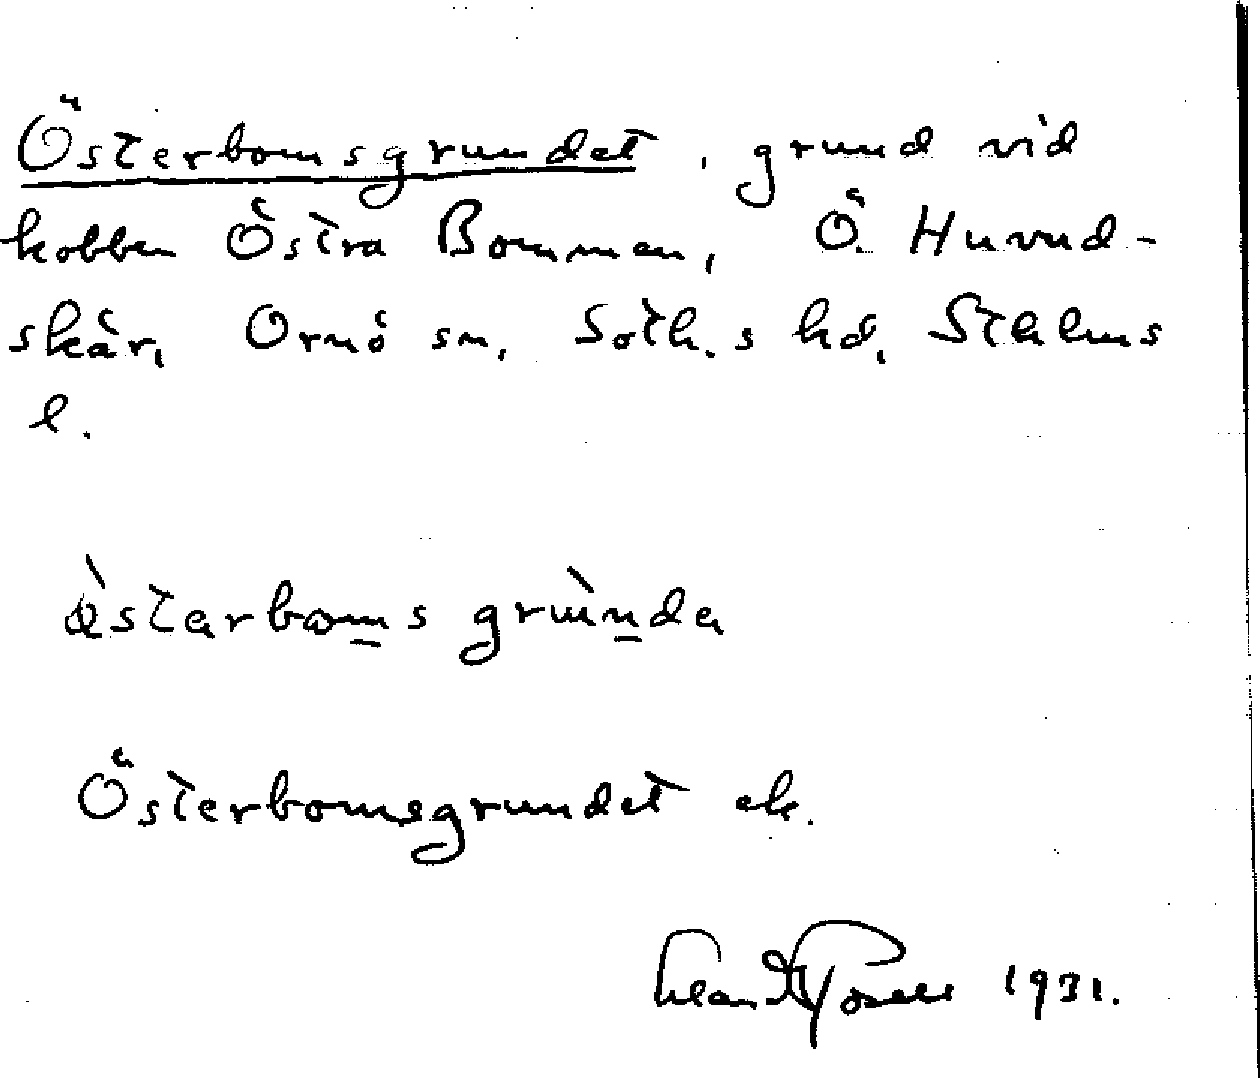 Österbomsgrundet, grund vid
kobben Östra Bommen, Ö. Huvud-
skär, Ornö sn, Soth.s hd, Sthlms
l.
österboms grunda
Österbomsgrundet ek.
1931.